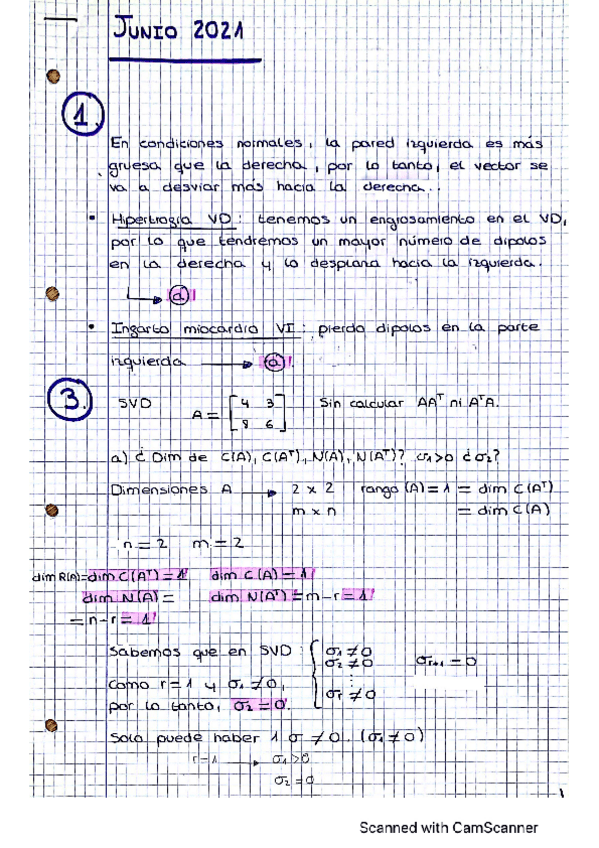 JUNIO 2021
1.
En condiciones normales, la pared izquierda es más
gruesa que la derecha, por lo tanto, el vector se
va a desviar más hacia la derecha.
• Hipertrogía VD: tenemos un engrosamiento en el VD,
por lo que tendremos un mayor número de dipolos
en la derecha y lo desplana hacia la izquierda.
a!
• Ingarto miocardio VI: pierdo dipolos en la parte
izquierda → a!
3. SVD A = [4 3 Sin calcular AAᵀ ni AᵀA.
8 6]
a) ¿Dim de C(A), C(Aᵀ), N(A), N(Aᵀ)? σ₁>0 ¿σ₂?
Dimensiones A → 2 x 2 rango (A) = 1 = dim C(Aᵀ)
m x n = dim C(A)
n = 2 m = 2
dim R(A) = dim C(Aᵀ) = 1! dim C(A) = 1!
dim N(A) = dim N(Aᵀ) = m-r = 1!
= n-r = 1!
Sabemos que en SVD: { σ₁ ≠ 0
σ₂ ≠ 0 σr+1 = 0
⋮
Como r = 1 y σ₁ ≠ 0, σr ≠ 0
por lo tanto, σ₂ = 0!
Solo puede haber 1 σ ≠ 0. (σ₁ ≠ 0)
r=1 → σ₁>0
σ₂ = 0
Scanned with CamScanner